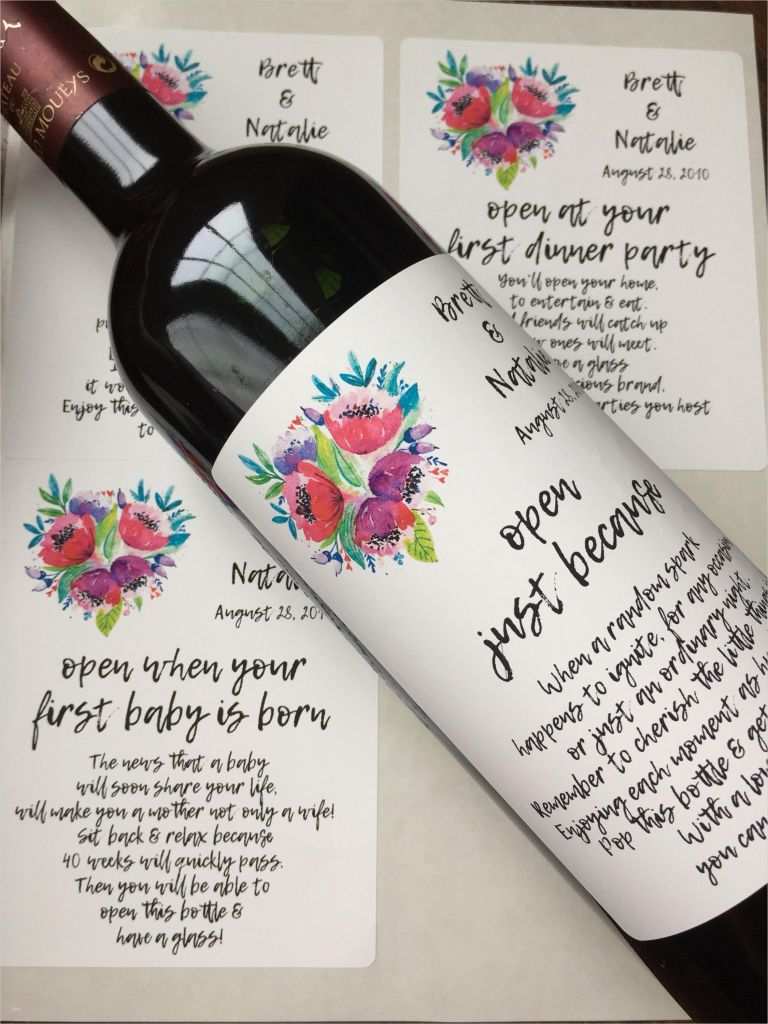 MOUEYS
Brett
&
Natalie
it
Enjoy this
to
Brett
&
Natalie
August 28, 2010
open at your
first dinner party
You'll open your home,
to entertain & eat.
friends will catch up
ones will meet.
a glass
brand.
you host
Brett
&
August 28,
open
just because
When a random spark
happens to ignite, for any occasion
or just an ordinary night.
Remember to cherish the little
Enjoying each moment as
Pop this bottle & get
With a
you can
August 28,
open when your
first baby is born
The news that a baby
will soon share your life,
will make you a mother not only a wife!
Sit back & relax because
40 weeks will quickly pass.
Then you will be able to
open this bottle &
have a glass!